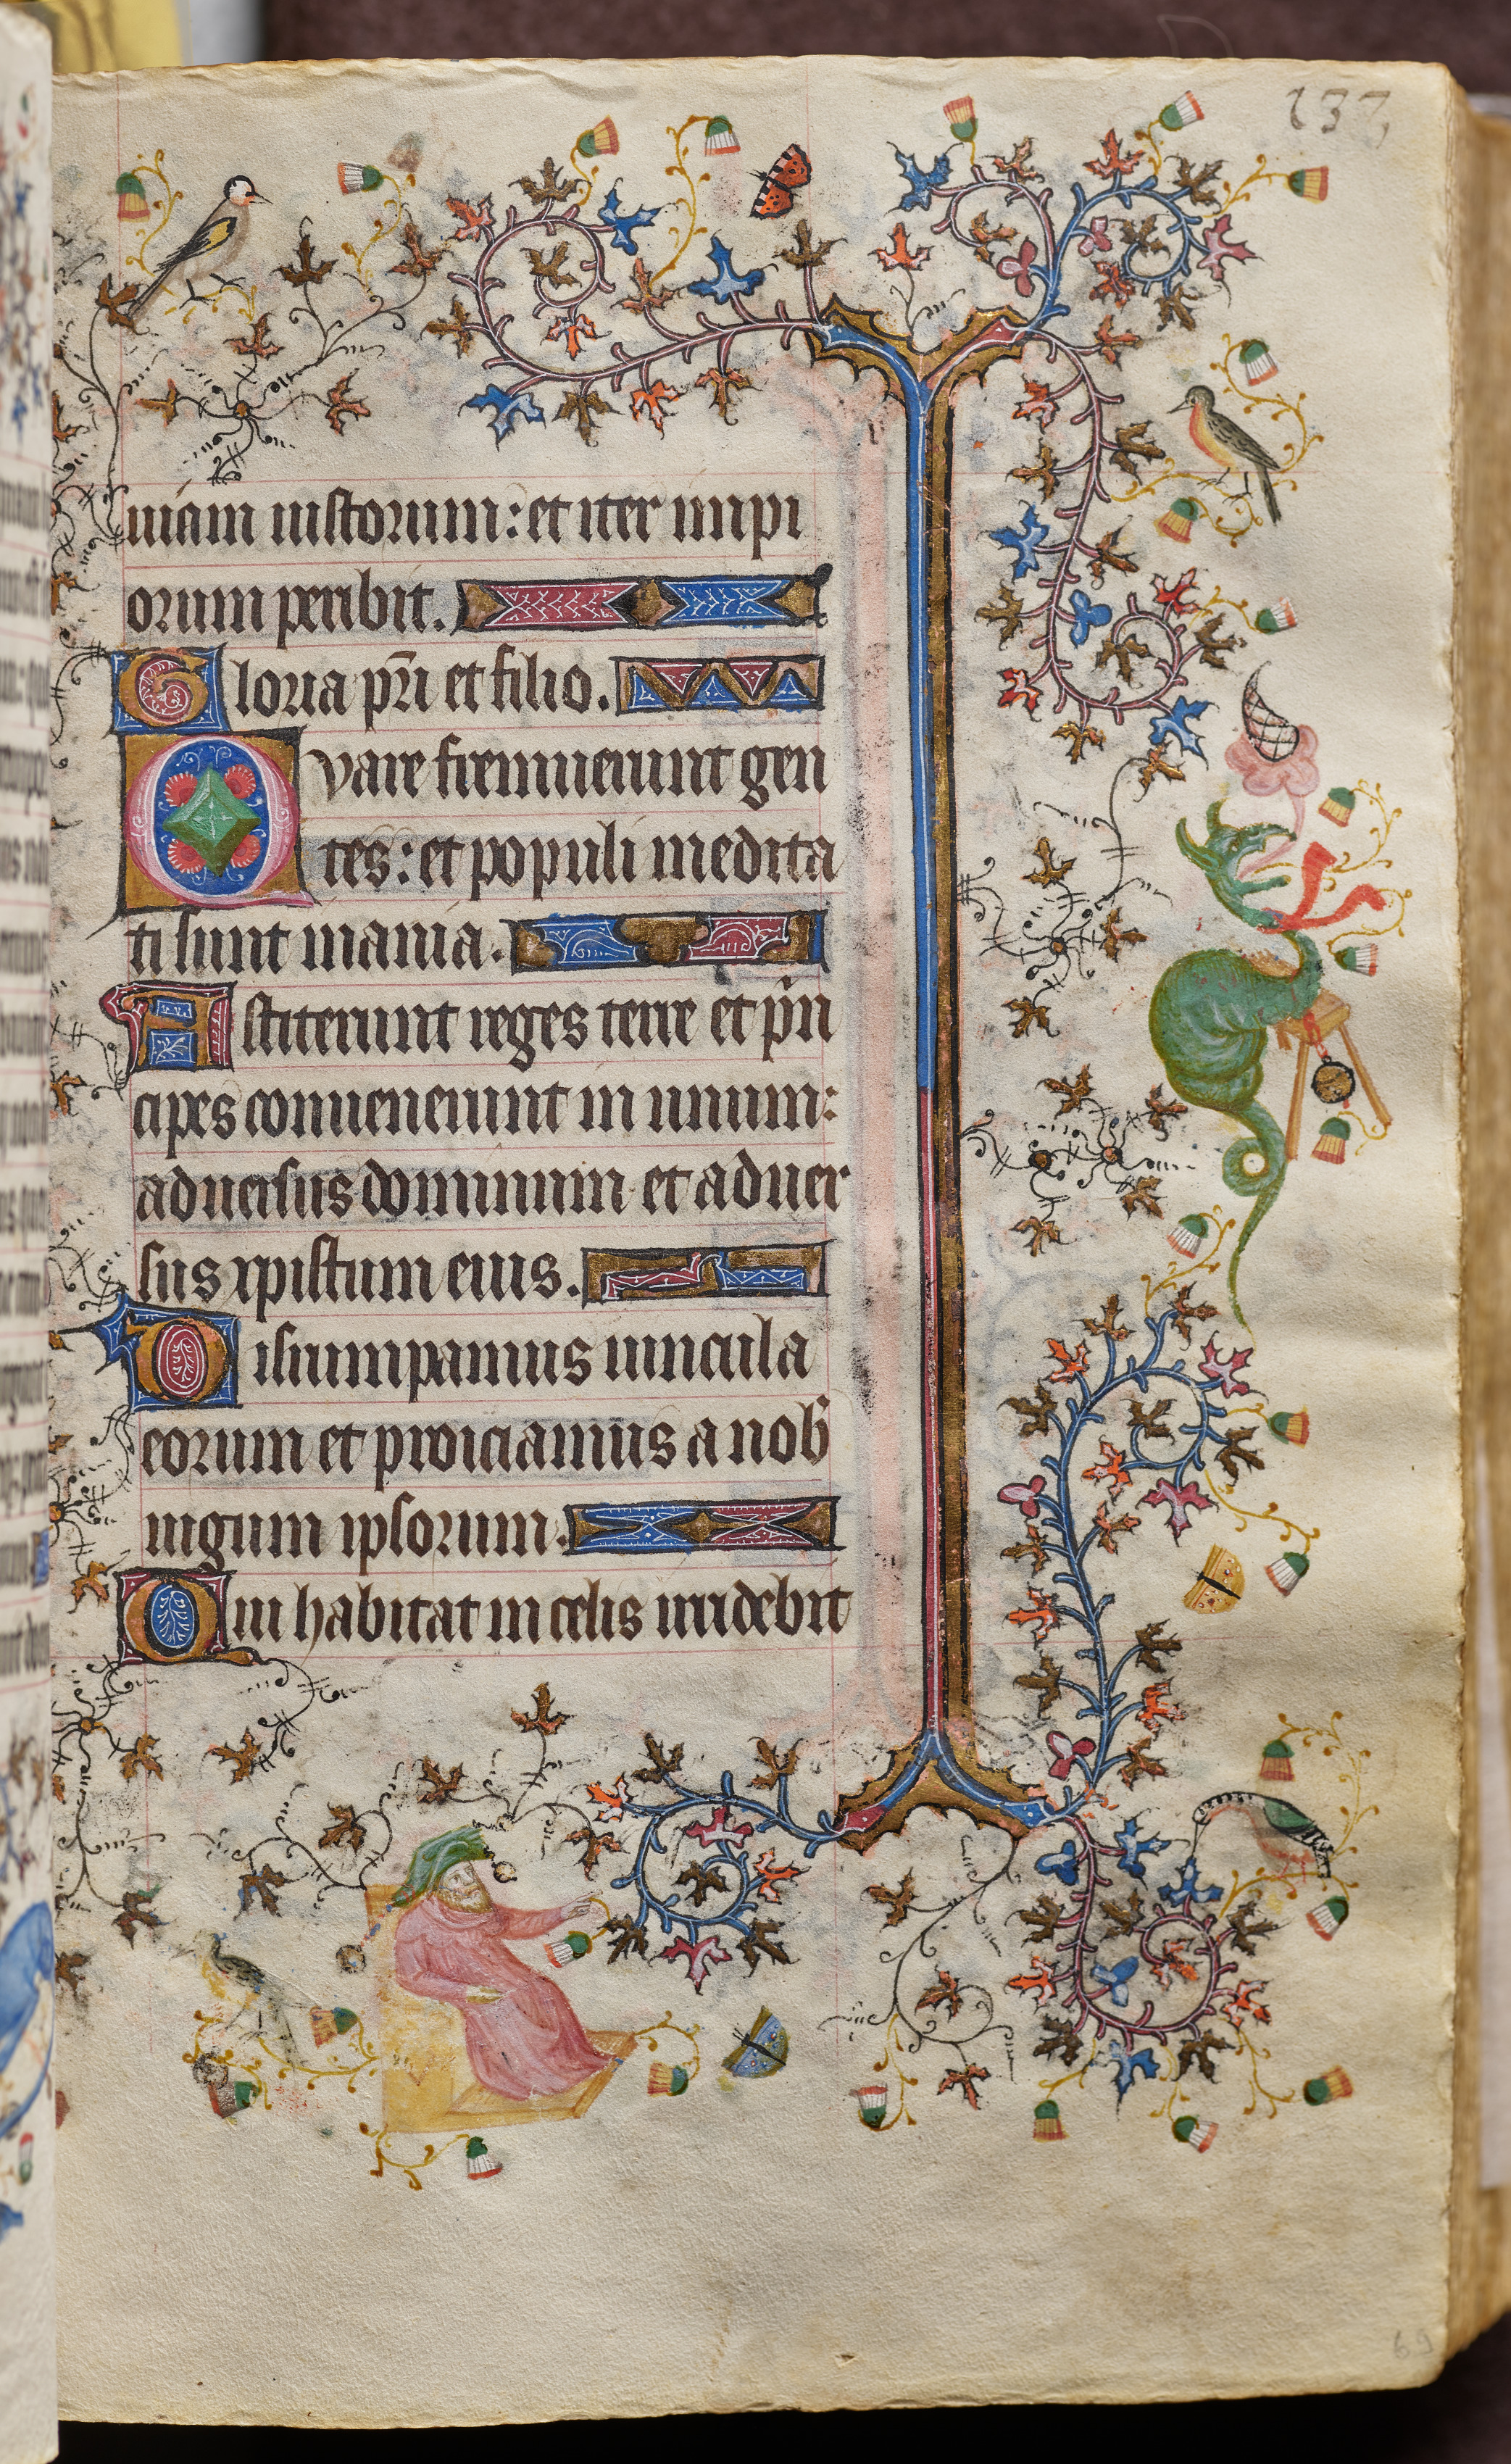 137
uiam iustorum: et iter impi
orum peribit.
Gloria pr̄i et filio.
Quare fremuerunt gen
tes: et populi medita
ti sunt inania.
Astiterunt reges terre et pⁱn
cipes conuenerunt in unum:
aduersus dominum et aduer
sus xpistum eius.
Disrumpamus uincula
eorum et proiciamus a nob̄
iugum ipsorum.
Qui habitat in celis irridebit
69